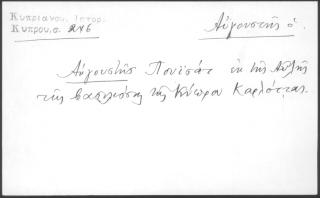 Κυπριανού, Ιστορ.
Κύπρου, σ. 246
Αὐγουστῆς ὁ.
Αὐγουστῆς Πουσὰτ ἐκ τῆς Αὐλῆς
τῆς βασιλίσσης τῆς Κύπρου Καρλόττας.